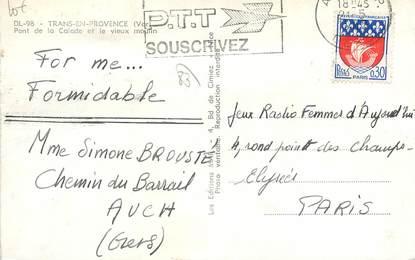 Lot
DL-98 - TRANS-EN-PROVENCE (Var)
Pont de la Calade et le vieux moulin
P.T.T
SOUSCRIVEZ
18H45
REPUBLIQUE FRANÇAISE
0,30
PARIS
For me...
Formidable
83
Mme Simone BROUSTE
Chemin du Barrail
AUCH
(Gers)
Bd de Cimiez
Reproduction interdite
Jeux Radio Femmes d'Aujourd'hui
4, rond point des Champs-
Elysées
PARIS